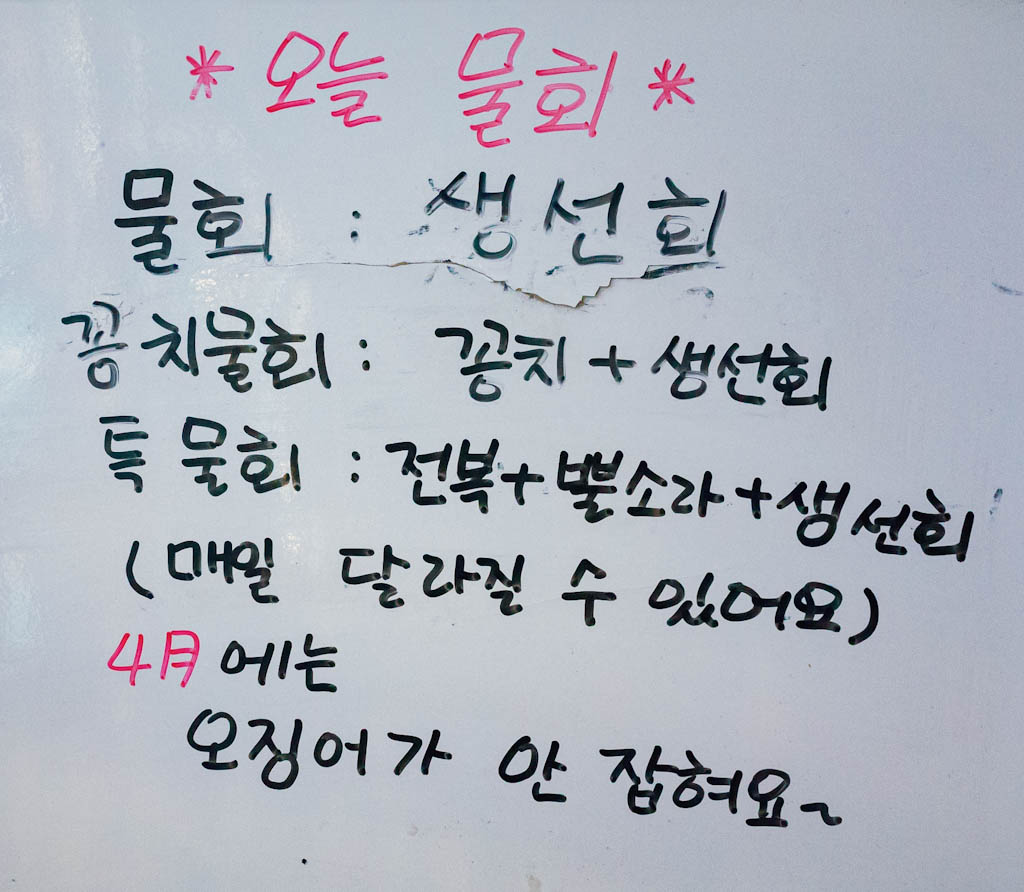 * 오늘 물회 *
물회 : 생선회
꽁치물회 : 꽁치 + 생선회
특 물회 : 전복+뿔소라+생선회
(매일 달라질 수 있어요)
4月에는
오징어가 안 잡혀요~